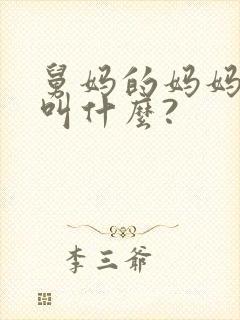 舅妈的妈妈
叫什麼?
李三爺